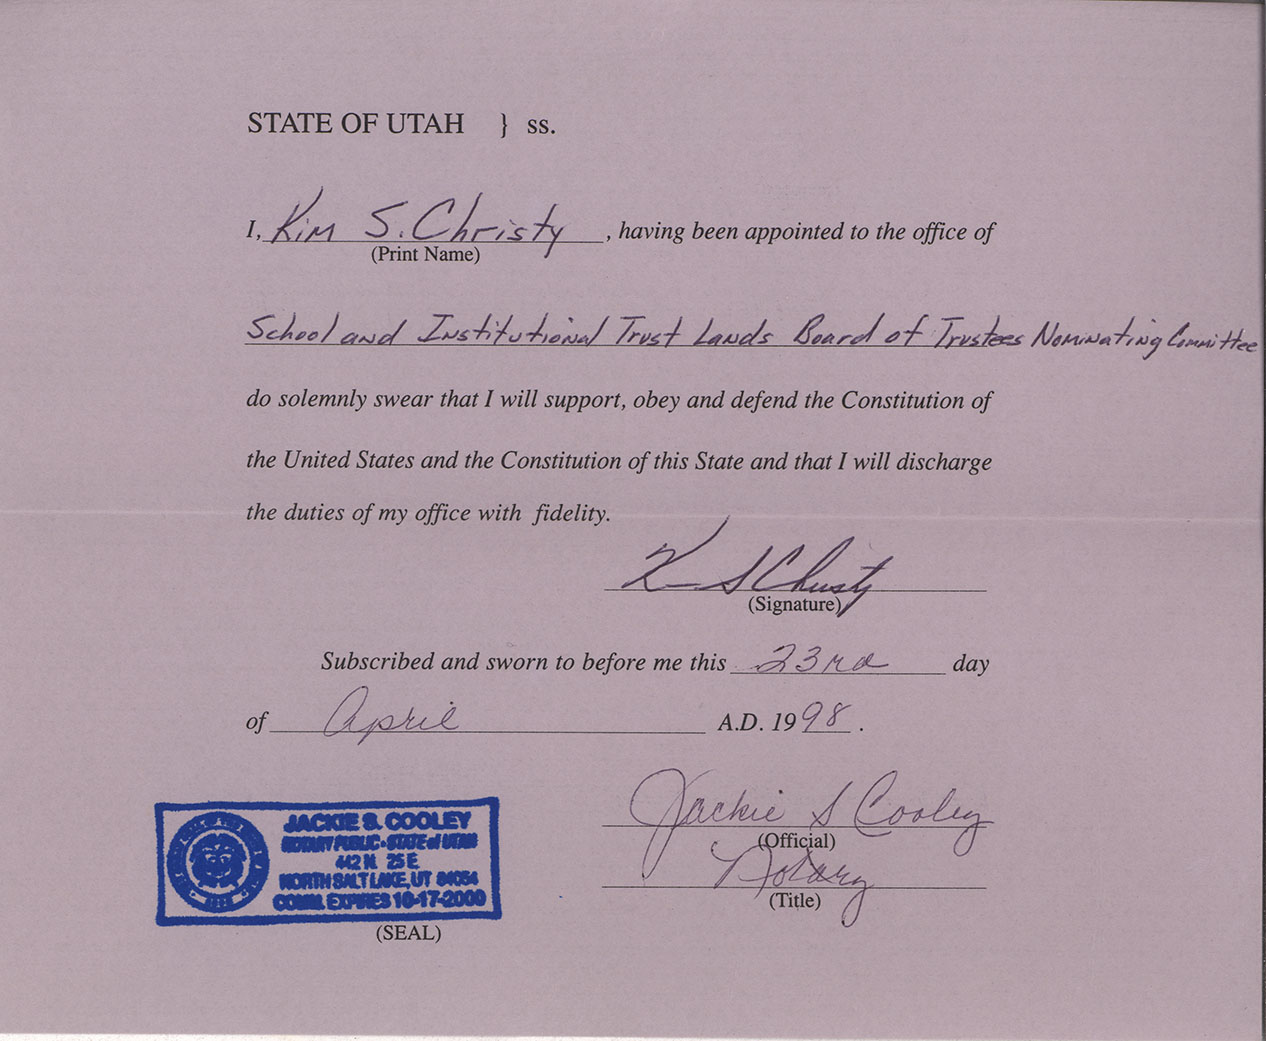 STATE OF UTAH } ss.
I, Kim S. Christy, having been appointed to the office of
(Print Name)
School and Institutional Trust Lands Board of Trustees Nominating Committee
do solemnly swear that I will support, obey and defend the Constitution of
the United States and the Constitution of this State and that I will discharge
the duties of my office with fidelity.
K S Christy
(Signature)
Subscribed and sworn to before me this 23rd day
of April A.D. 1998.
Jackie S Cooley
(Official)
Notary
(Title)
JACKIE S. COOLEY
NOTARY PUBLIC • STATE of UTAH
442 N 25 E
NORTH SALT LAKE, UT 84054
COMM. EXPIRES 10-17-2000
(SEAL)